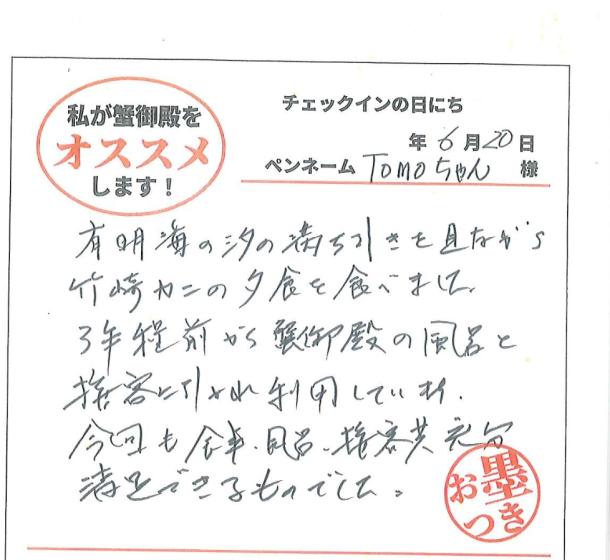 私が蟹御殿を
オススメ
します！
チェックインの日にち
年 6月20日
ペンネーム Tomoちゃん 様
有明海の汐の満ち引きを見ながら
竹崎カニの夕食を食べました。
3年程前から蟹御殿の風呂と
接客に引かれ利用しています。
今回も食事、風呂、接客共充分
満足できるものでした。
お墨
つき